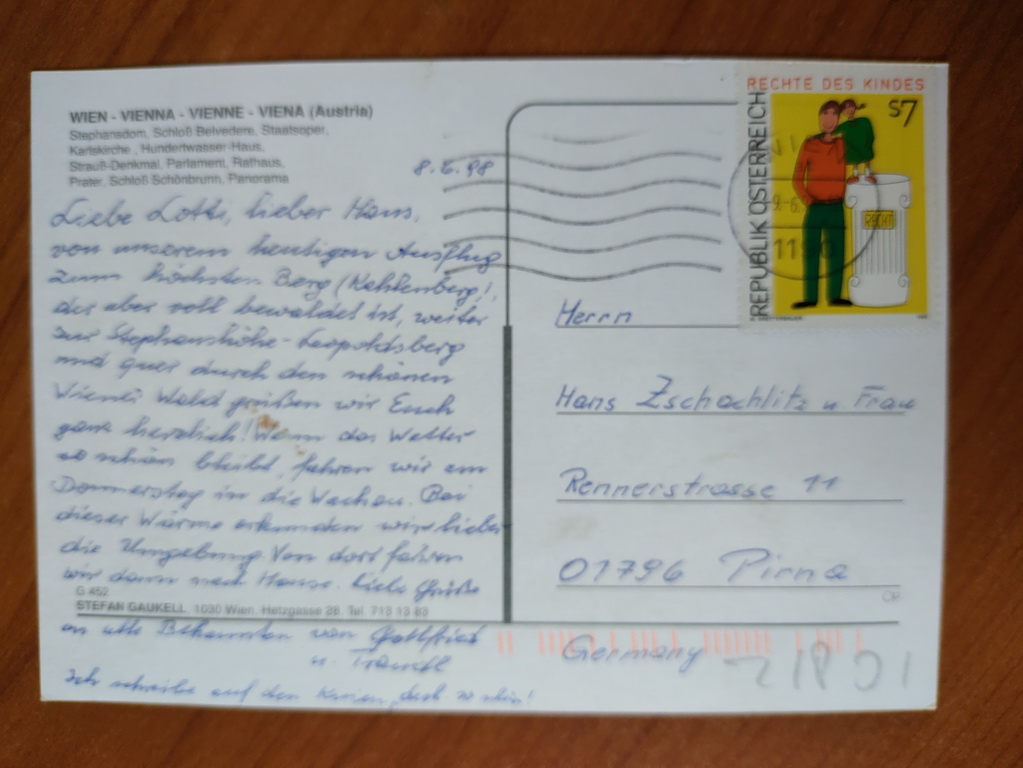 WIEN - VIENNA - VIENNE - VIENA (Austria)
Stephansdom, Schloß Belvedere, Staatsoper,
Karlskirche, Hundertwasser-Haus,
Strauß-Denkmal, Parlament, Rathaus,
Prater, Schloß Schönbrunn, Panorama
8.6.98
Liebe Lotti, lieber Hans,
von unserem heutigen Ausflug
zum höchsten Berg (Kahlenberg),
der aber voll bewaldet ist, weiter
zur Stephanshöhe - Leopoldsberg
und quer durch den schönen
Wiener Wald grüßen wir Euch
ganz herzlich! Wenn das Wetter
so schön bleibt, fahren wir am
Donnerstag in die Wachau. Bei
dieser Wärme erkunden wir lieber
die Umgebung. Von dort fahren
wir dann nach Hause. Viele Grüße
G 452
STEFAN GAUKELL, 1030 Wien, Hetzgasse 28, Tel. 713 13 83
an alle Bekannten von Gottfried
u. Traudl
Ich schreibe auf den Knien, doch so schön!
RECHTE DES KINDES
S7
REPUBLIK ÖSTERREICH
RECHT
Herrn
Hans Zschachlitz u. Frau
Rennerstrasse 11
01796 Pirna
Germany